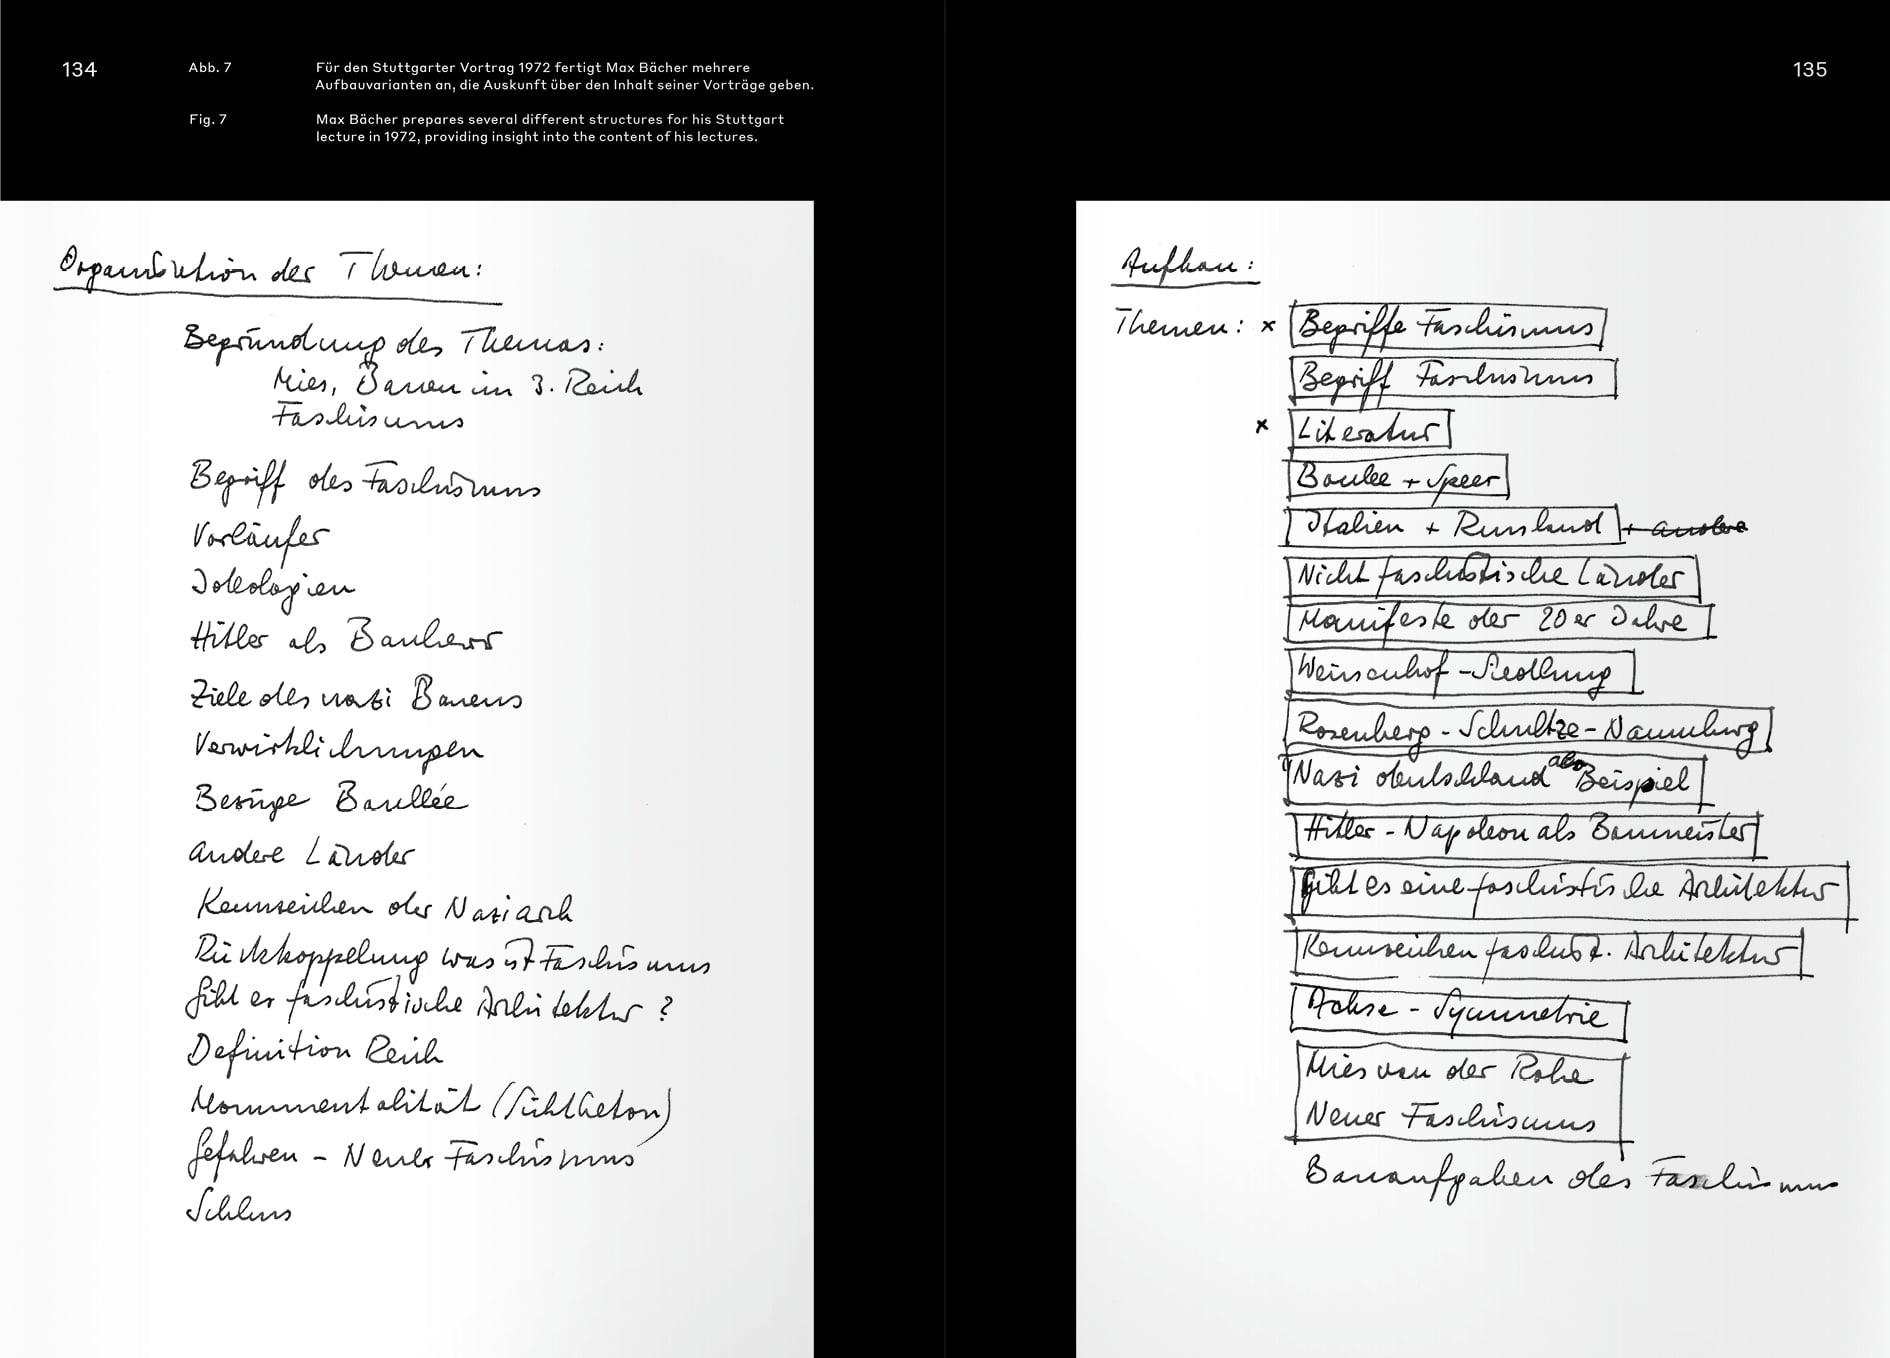 134
Abb. 7
Für den Stuttgarter Vortrag 1972 fertigt Max Bächer mehrere
Aufbauvarianten an, die Auskunft über den Inhalt seiner Vorträge geben.
Fig. 7
Max Bächer prepares several different structures for his Stuttgart
lecture in 1972, providing insight into the content of his lectures.
135
Organisation der Themen:
Begründung des Themas:
Mies, Bauen im 3. Reich
Faschismus
Begriff des Faschismus
Vorläufer
Ideologien
Hitler als Bauherr
Ziele des nazi Bauens
Verwirklichungen
Bezüge Boullée
andere Länder
Kennzeichen der Naziarch
Rückkoppelung was ist Faschismus
Gibt es faschistische Architektur ?
Definition Reich
Monumentalität (Sichtbeton)
Gefahren – Neuer Faschismus
Schluss
Aufbau :
Themen : x Begriffe Faschismus
Begriff Faschismus
x Literatur
Boulee + Speer
Italien + Russland + andere
Nicht faschistische Länder
Manifeste der 20er Jahre
Weissenhof-Siedlung
Rosenberg - Schultze-Naumburg
Nazi deutschland als Beispiel
Hitler - Napoleon als Baumeister
Gibt es eine faschistische Architektur
Kennzeichen faschist. Architektur
Achse - Symmetrie
Mies van der Rohe
Neuer Faschismus
Bauaufgaben des Faschismus